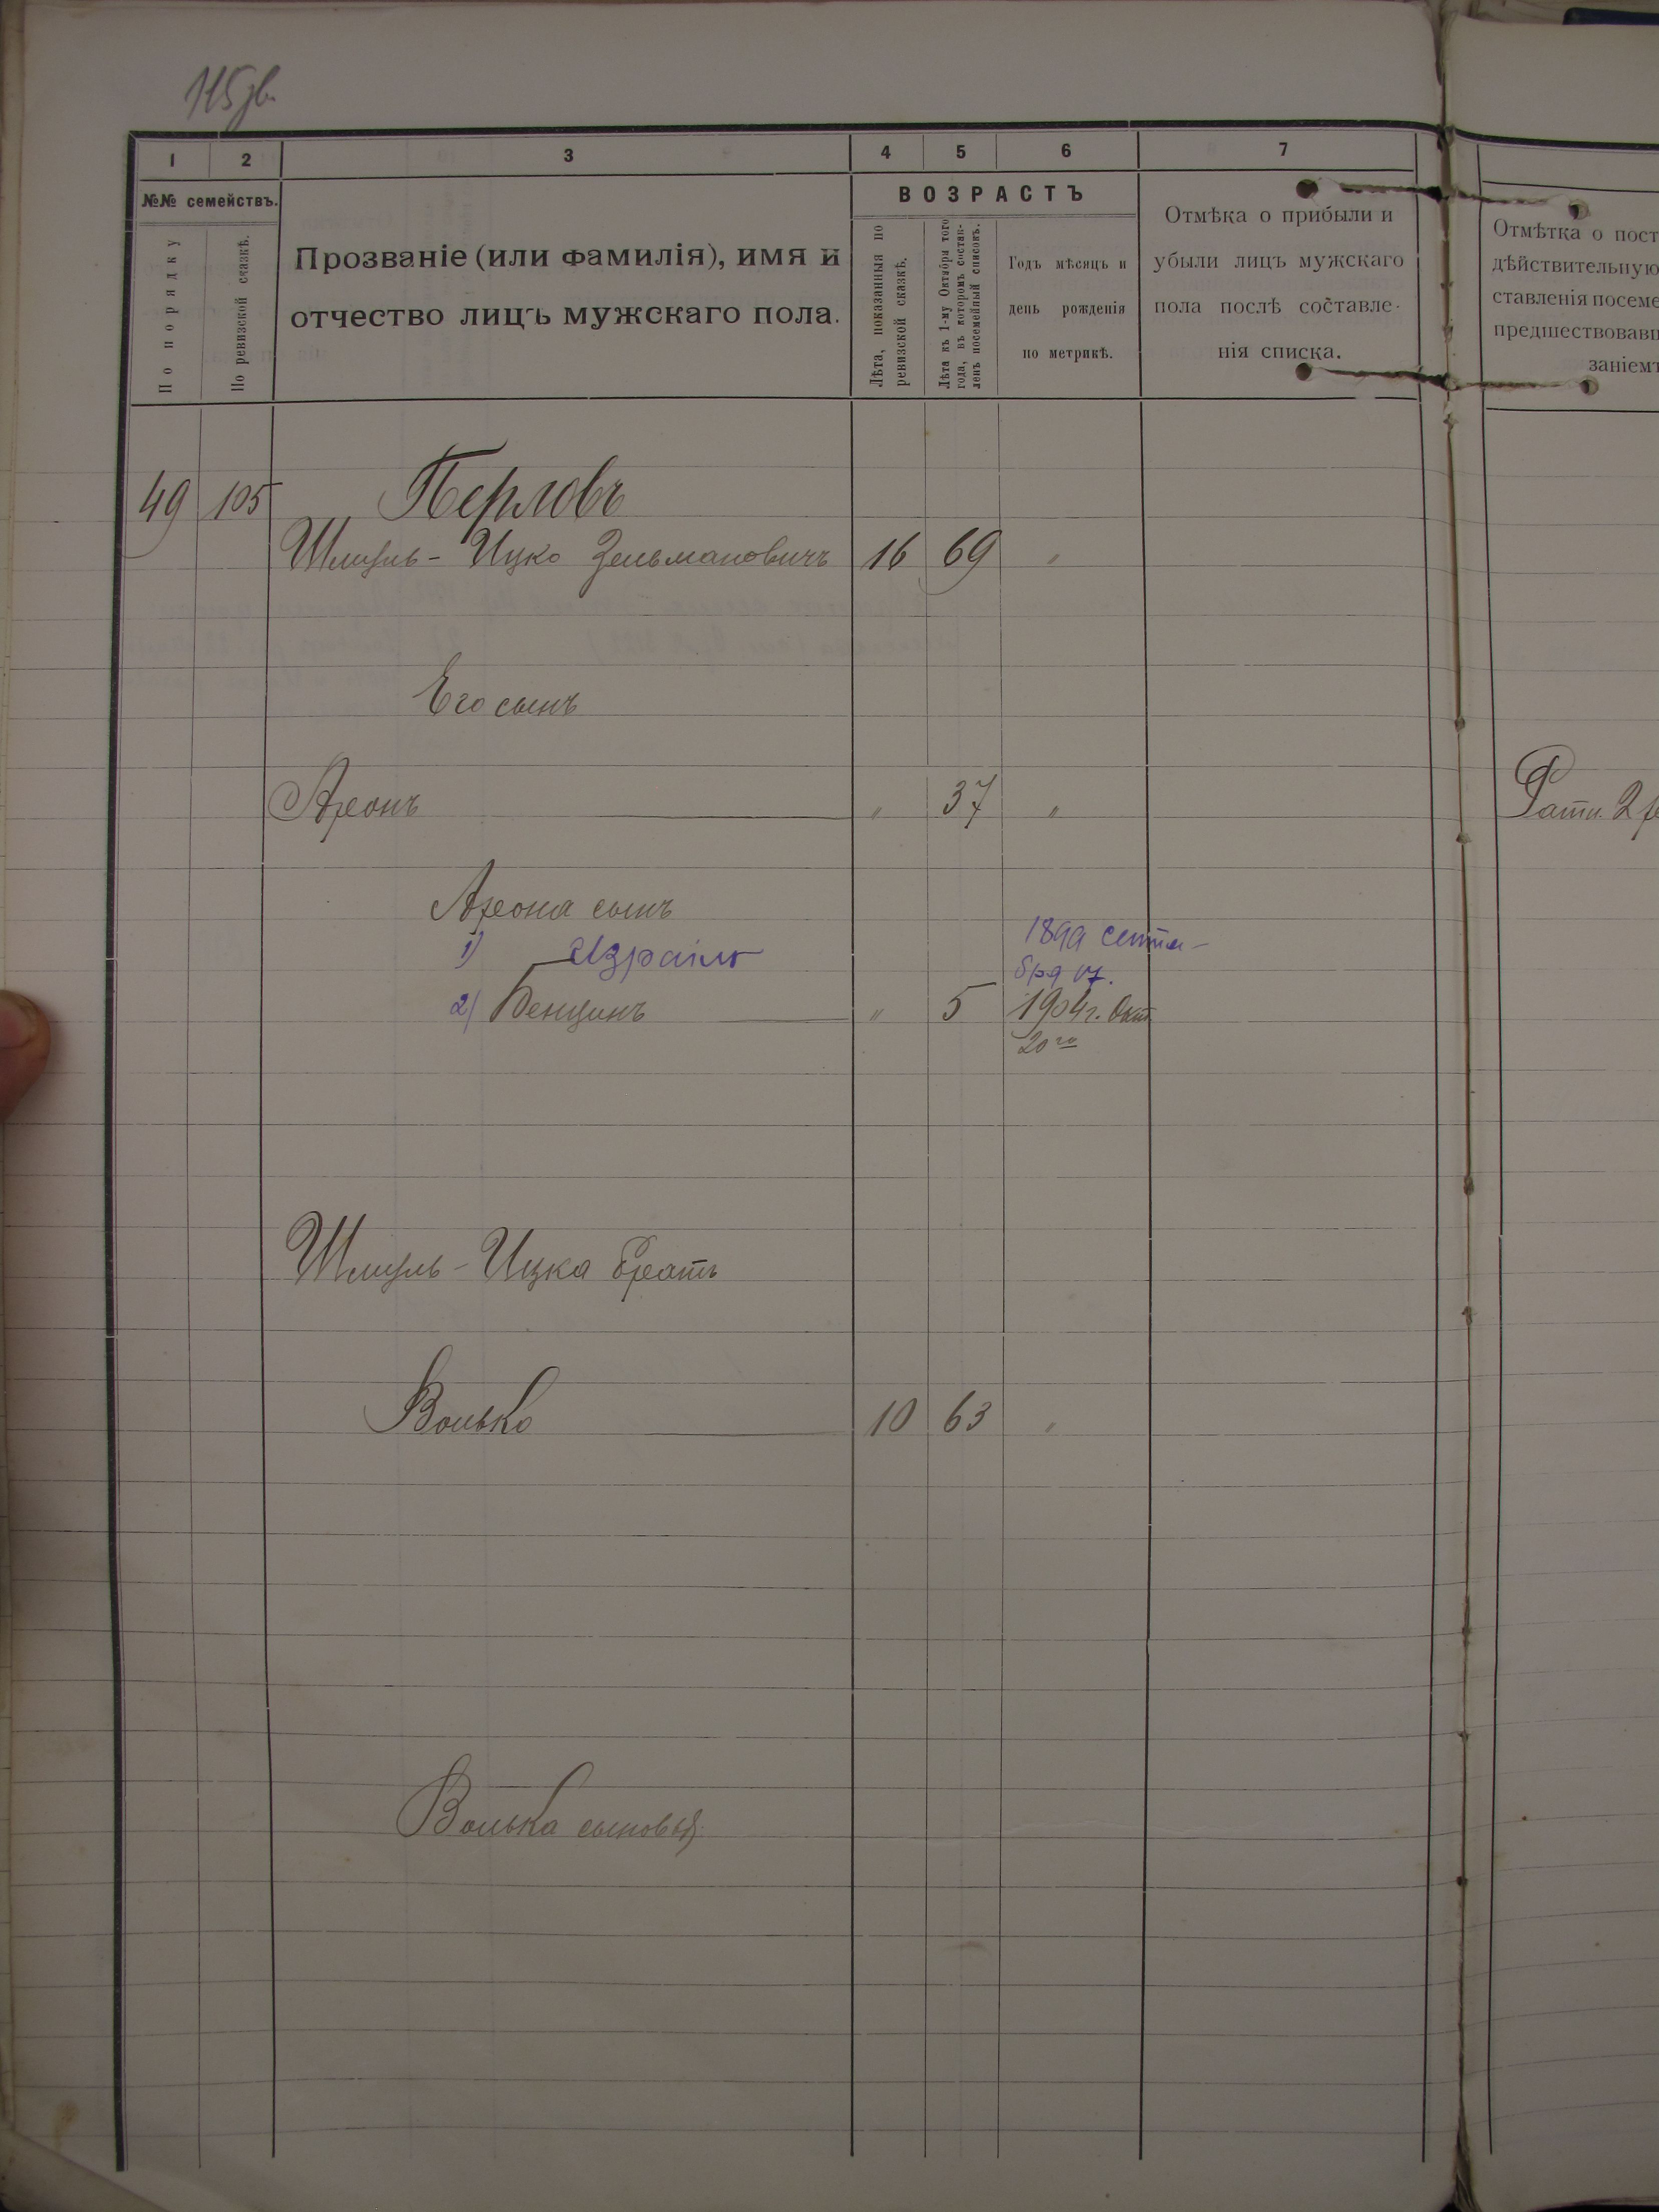 1 2 3 4 5 6 7
№№ семействъ.
По порядку
По ревизской сказкѣ.
Прозваніе (или фамилія), имя и
отчество лицъ мужскаго пола.
ВОЗРАСТЪ
Лѣта, показанныя по
ревизской сказкѣ.
Лѣта къ 1-му Октября того
года, въ которомъ состав-
ленъ посемейный списокъ.
Годъ мѣсяцъ и
день рожденія
по метрикѣ.
Отмѣка о прибыли и
убыли лицъ мужскаго
пола послѣ составле-
нія списка.
Отмѣтка о пост
дѣйствительную
ставленія посеме
предшествовавш
заніемъ
49 105 Перловъ
Шмуль-Ицко Зельмановичъ 16 69 "
Его сынъ
Аронъ " 37 "
Рати. 2
Арона сынъ
1) Израиль 1899 сентя-
бря 17.
2) Бенцинъ " 5 1904г. Окт
20го
Шмуль-Ицка братъ
Волько 10 63 "
Волька сыновья